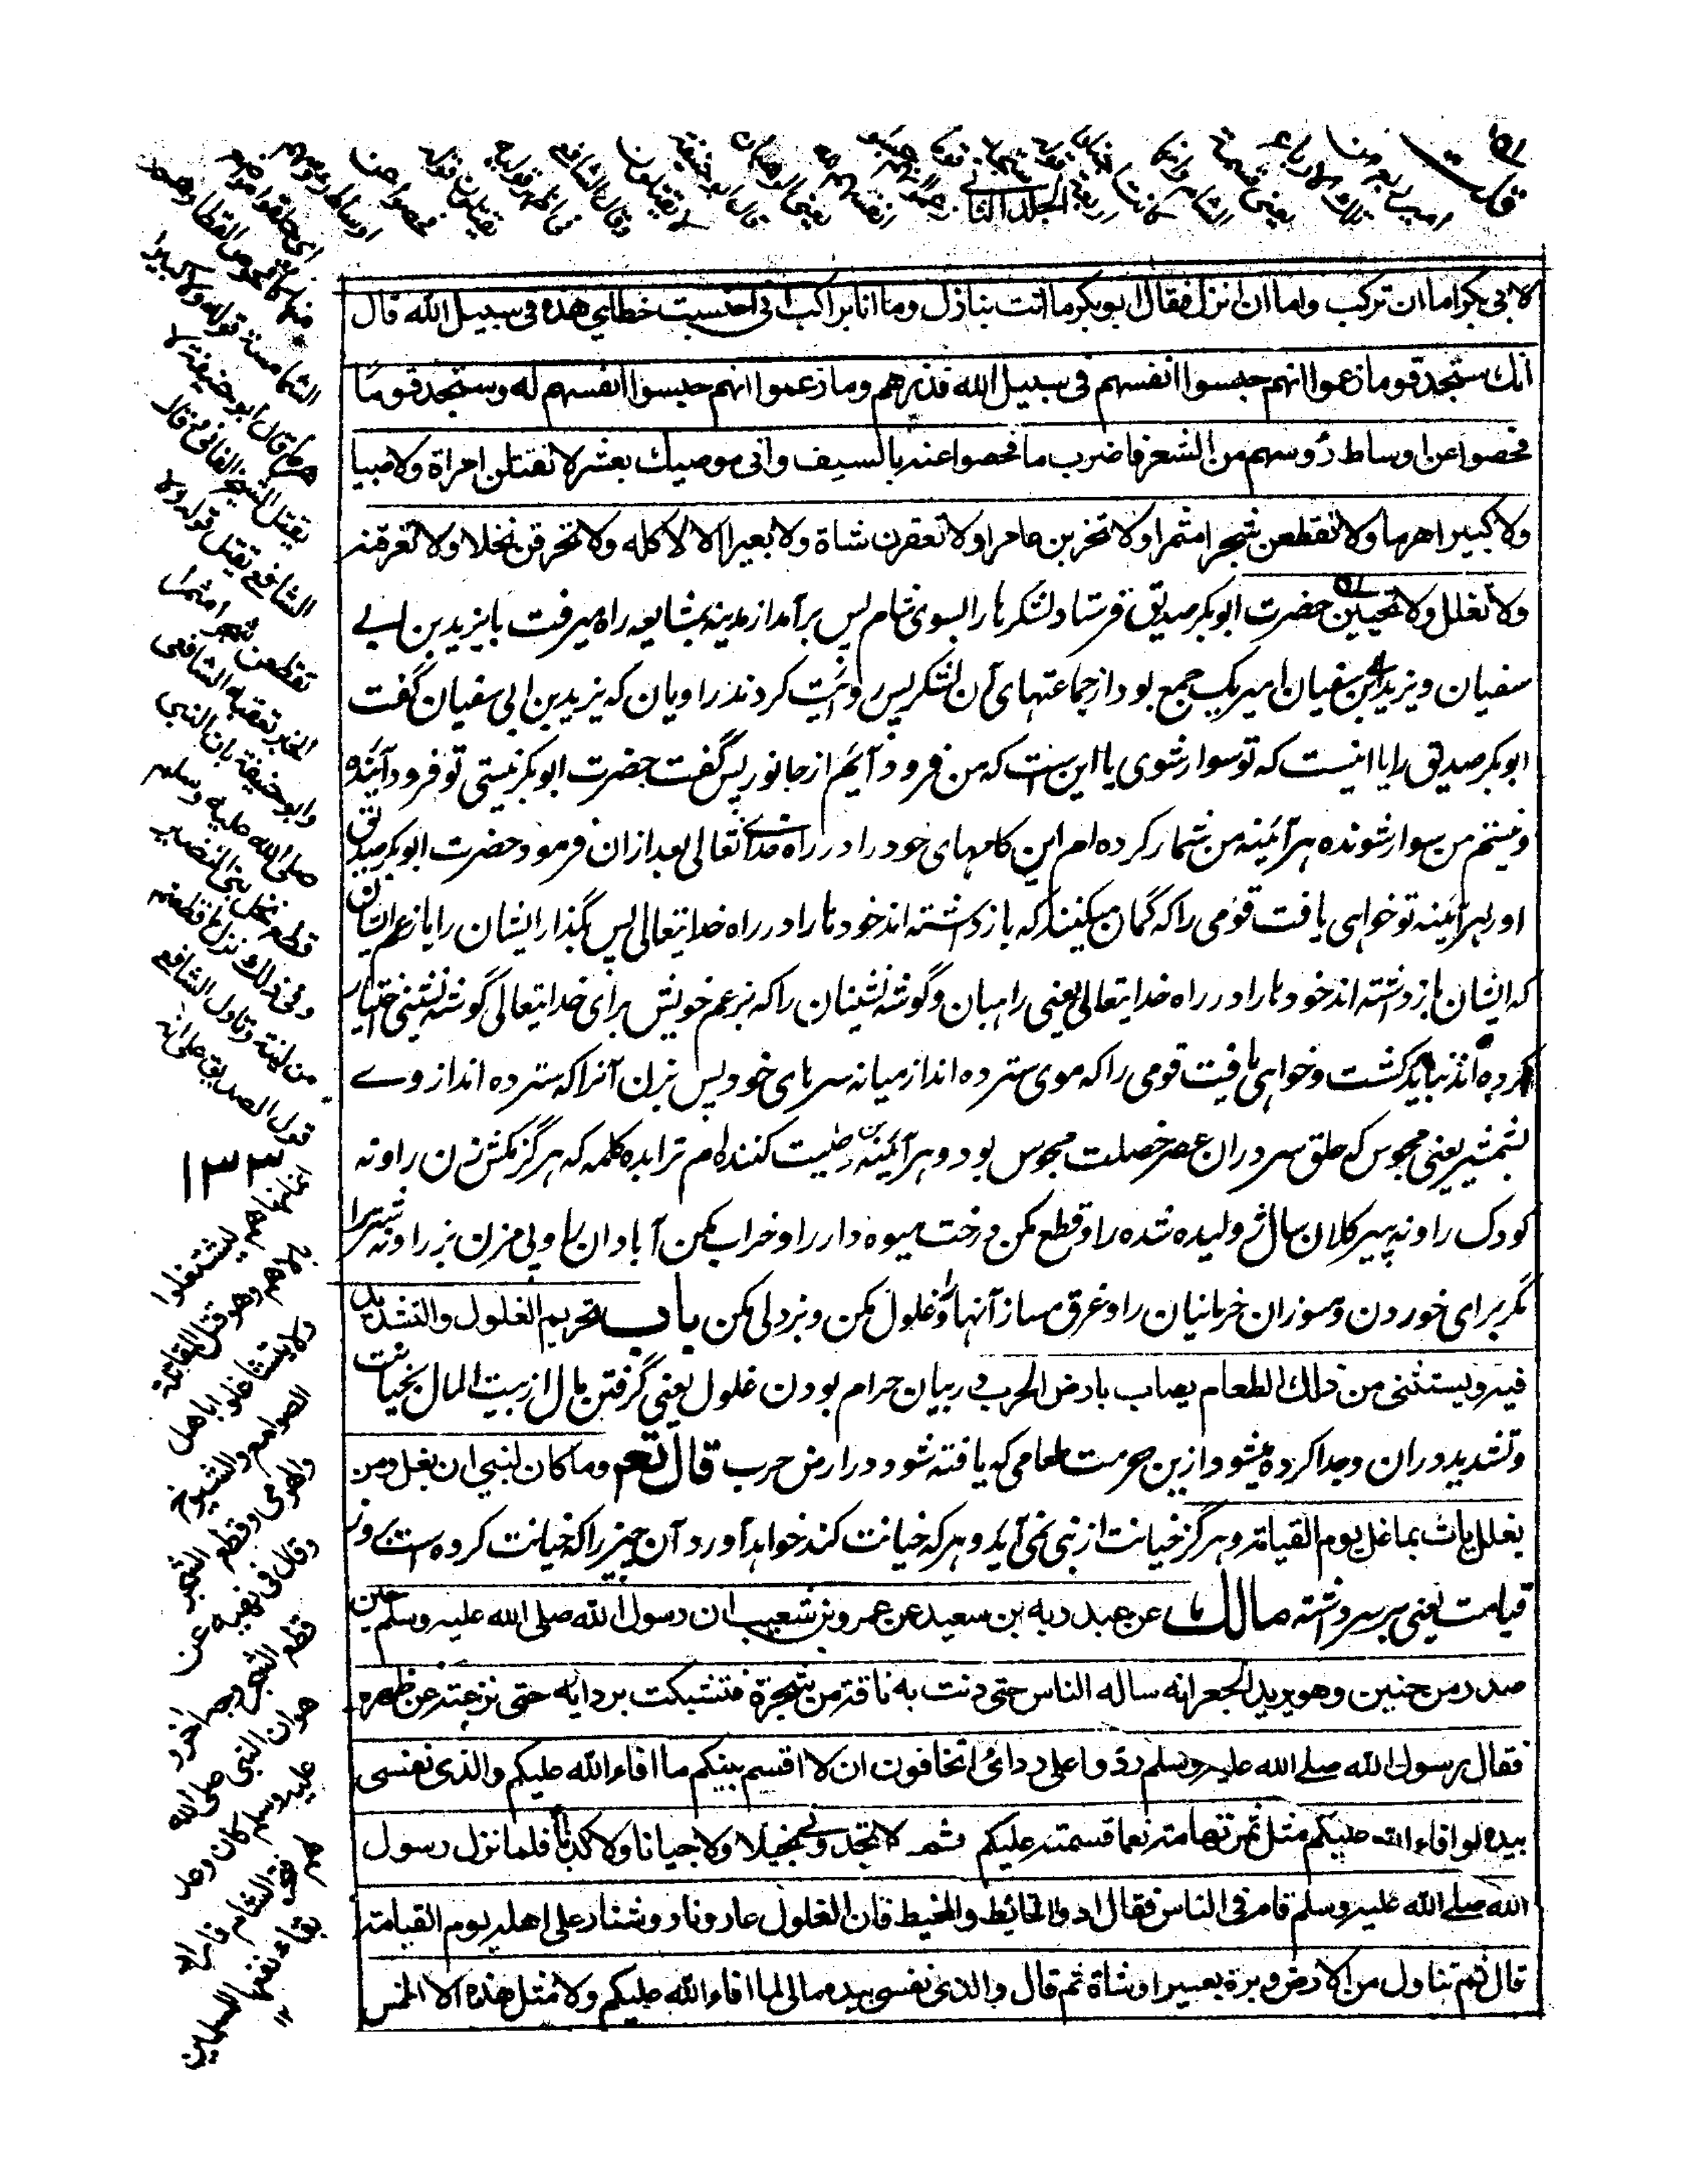 لابی بکر اما ان ترکب واما ان انزل فقال ابوبکر ما انت بنازل وما انا براکب انی احتسبت خطای هذه فی سبیل الله قال
انک ستجد قوما زعموا انهم حبسوا انفسهم فی سبیل الله فذرهم وما زعموا انهم حبسوا انفسهم له وستجد قوما
فحصوا عن اوساط رؤسهم من الشعر فاضرب ما فحصوا عنه بالسیف وانی موصیک بعشر لا تقتلن امراة ولا صبیا
ولا کبیرا هرما ولا تقطعن شجرا مثمرا ولا تخربن عامرا ولا تعقرن شاة ولا بعیرا الا لاکله ولا تحرقن نخلا ولا تغرقنه
ولا تغلل ولا تجبن حضرت ابوبکر صدیق فرستاد لشکرها را بسوی شام پس برآمد از مدینه بمشایعه راه میرفت با یزید بن ابی
سفیان و یزید بن سفیان امیر یک جمع بود از جماعتهای آن لشکر پس روایت کردند راویان که یزید بن ابی سفیان گفت
ابوبکر صدیق را یا اینست که تو سوار شوی یا این ست که من فرود آیم از جانور پس گفت حضرت ابوبکر نیستی تو فرود آینده
ونیستم من سوار شونده هرآئینه من شمار کرده ام این کامهای خود را در راه خدای تعالی بعد ازان فرمود حضرت ابوبکر صدیق
او را هرآئینه تو خواهی یافت قومی را که گمان میکنند که بازداشته اند خودها را در راه خدایتعالی پس بگذار ایشان را بازعم ایشان
که ایشان بازداشته اند خودها را در راه خدایتعالی یعنی راهبان و گوشه نشینان را که بزعم خویش برای خدایتعالی گوشه نشینی اختیار
کرده اند نباید کشت و خواهی یافت قومی را که موی سترده اند از میانه سرهای خود پس بزن آنرا که سترده اند از وے
بشمشیر یعنی مجوس که حلق سر دران عصر خصلت مجوس بود و هرآئینه وصیت کننده ام ترا بده کلمه که هرگز مکش زن را و نه
کودک را و نه پیر کلان سال ژولیده شده را و قطع مکن درخت میوه دار را و خراب مکن آبادان را و پی مزن بز را و نه شتر را
مگر برای خوردن و مسوزان خرمائیان را و غرق مساز آنها را و غلول مکن و بزدلی مکن باب تحریم الغلول والتشدید
فیه ویستثنی من ذلک الطعام یصاب بارض الحرب در بیان حرام بودن غلول یعنی گرفتن مال از بیت المال بخیانت
وتشدید دران و جدا کرده میشود ازین حرمت طعامی که یافته شود در ارض حرب قال تعم وما کان لنبی ان یغل ومن
یغلل یات بما غل یوم القیامة و هرگز خیانت از نبی نمی آید و هر که خیانت کند خواهد آورد آن چیز را که خیانت کرده است روز
قیامت یعنی بر سر داشته مالک عن عبد ربه بن سعید عن عمرو بن شعیب ان رسول الله صلی الله علیه وسلم حین
صدر من حنین وهو یرید الجعرانه ساله الناس حتی دنت به ناقته من شجرة فتشبکت بردایه حتی نزعته عن ظهره
فقال رسول الله صلے الله علیه وسلم ردوا علی ردائی اتخافون ان لا اقسم بینکم ما افاء الله علیکم والذی نفسی
بیده لو افاء الله علیکم مثل ثمر تهامة نعما قسمته علیکم ثم لا تجدونی بخیلا ولا جبانا ولا کذابا فلما نزل رسول
الله صلے الله علیه وسلم قام فی الناس فقال ادوا الخائط والمخیط فان الغلول عار ونار وشنار علی اهله یوم القیامة
قال ثم تناول من الارض وبرة بعیر او شاة ثم قال والذی نفسی بیده مالی لما افاء الله علیکم ولا مثل هذه الا الخمس
الجلد الثانی
الشامسة قوله ولا کبیرا
هرما قال ابو حنیفة لا
یقتل الشیخ الفانی وقال
الشافع یقتل قوله ولا
تقطعن شجرا مثمرا
الخ تعقبه الشافعی
وابو حنیفة بان النبی
صلی الله علیه وسلم
قطع نخل بنی النضیر
وفی ذلک نزل ما قطعتم
من لینة وتاول الشافع
قول الصدیق علی انه
۱۳۳
انما نهاهم
لیشتغلوا
ولا یتشاغلوا باهل
الصوامع والشیوخ
وقال فی نهیه عن
قطع الشجر وجه اخر
هو ان النبی صلی الله
علیه وسلم کان وعد
هم فتح الشام